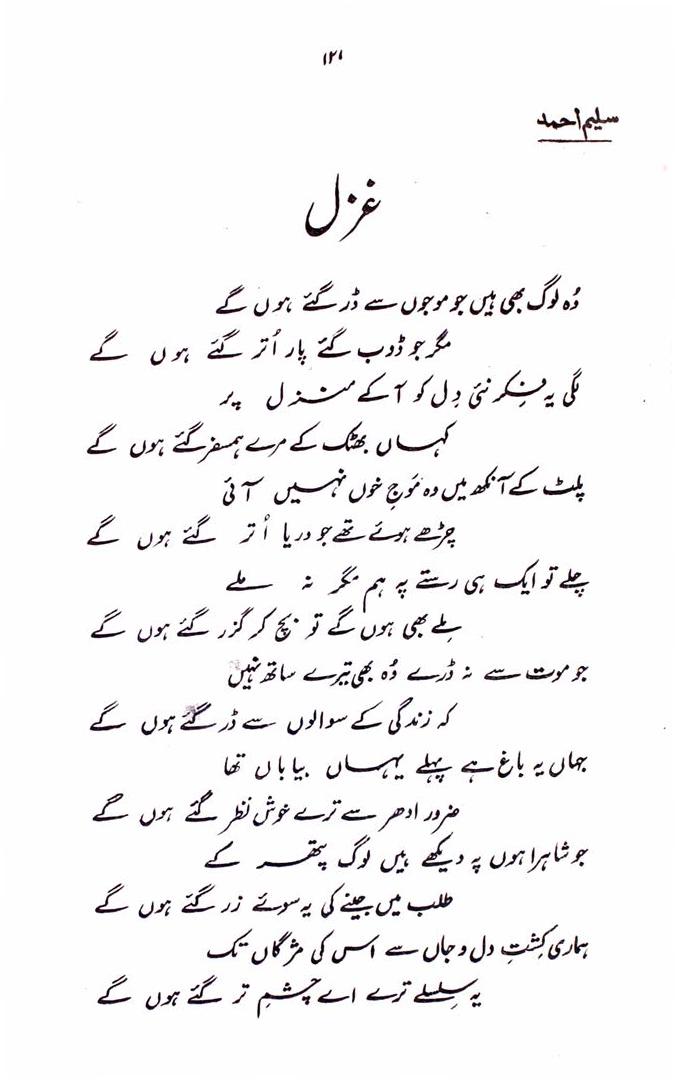 ۱۲۱
سلیم احمد
غزل
وُہ لوگ بھی ہیں جو موجوں سے ڈر گئے ہوں گے
مگر جو ڈوب گئے پار اُتر گئے ہوں گے
لگی یہ فِکر نئی دِل کو آ کے منزل پر
کہاں بھٹک کے مرے ہمسفر گئے ہوں گے
پلٹ کے آنکھ میں وہ مَوجِ خوں نہیں آئی
چڑھے ہوئے تھے جو دریا اُتر گئے ہوں گے
چلے تو ایک ہی رستے پہ ہم مگر نہ ملے
مِلے بھی ہوں گے تو بچ کر گزر گئے ہوں گے
جو موت سے نہ ڈرے وُہ بھی تیرے ساتھ نہیں
کہ زندگی کے سوالوں سے ڈر گئے ہوں گے
جہاں یہ باغ ہے پہلے یہاں بیاباں تھا
ضرور ادھر سے ترے خوش نظر گئے ہوں گے
جو شاہراہوں پہ دیکھے ہیں لوگ پتھر کے
طلب میں جینے کی یہ سوئے زر گئے ہوں گے
ہماری کِشتِ دل و جاں سے اس کی مژگاں تک
یہ سِلسلے ترے اے چشمِ تر گئے ہوں گے